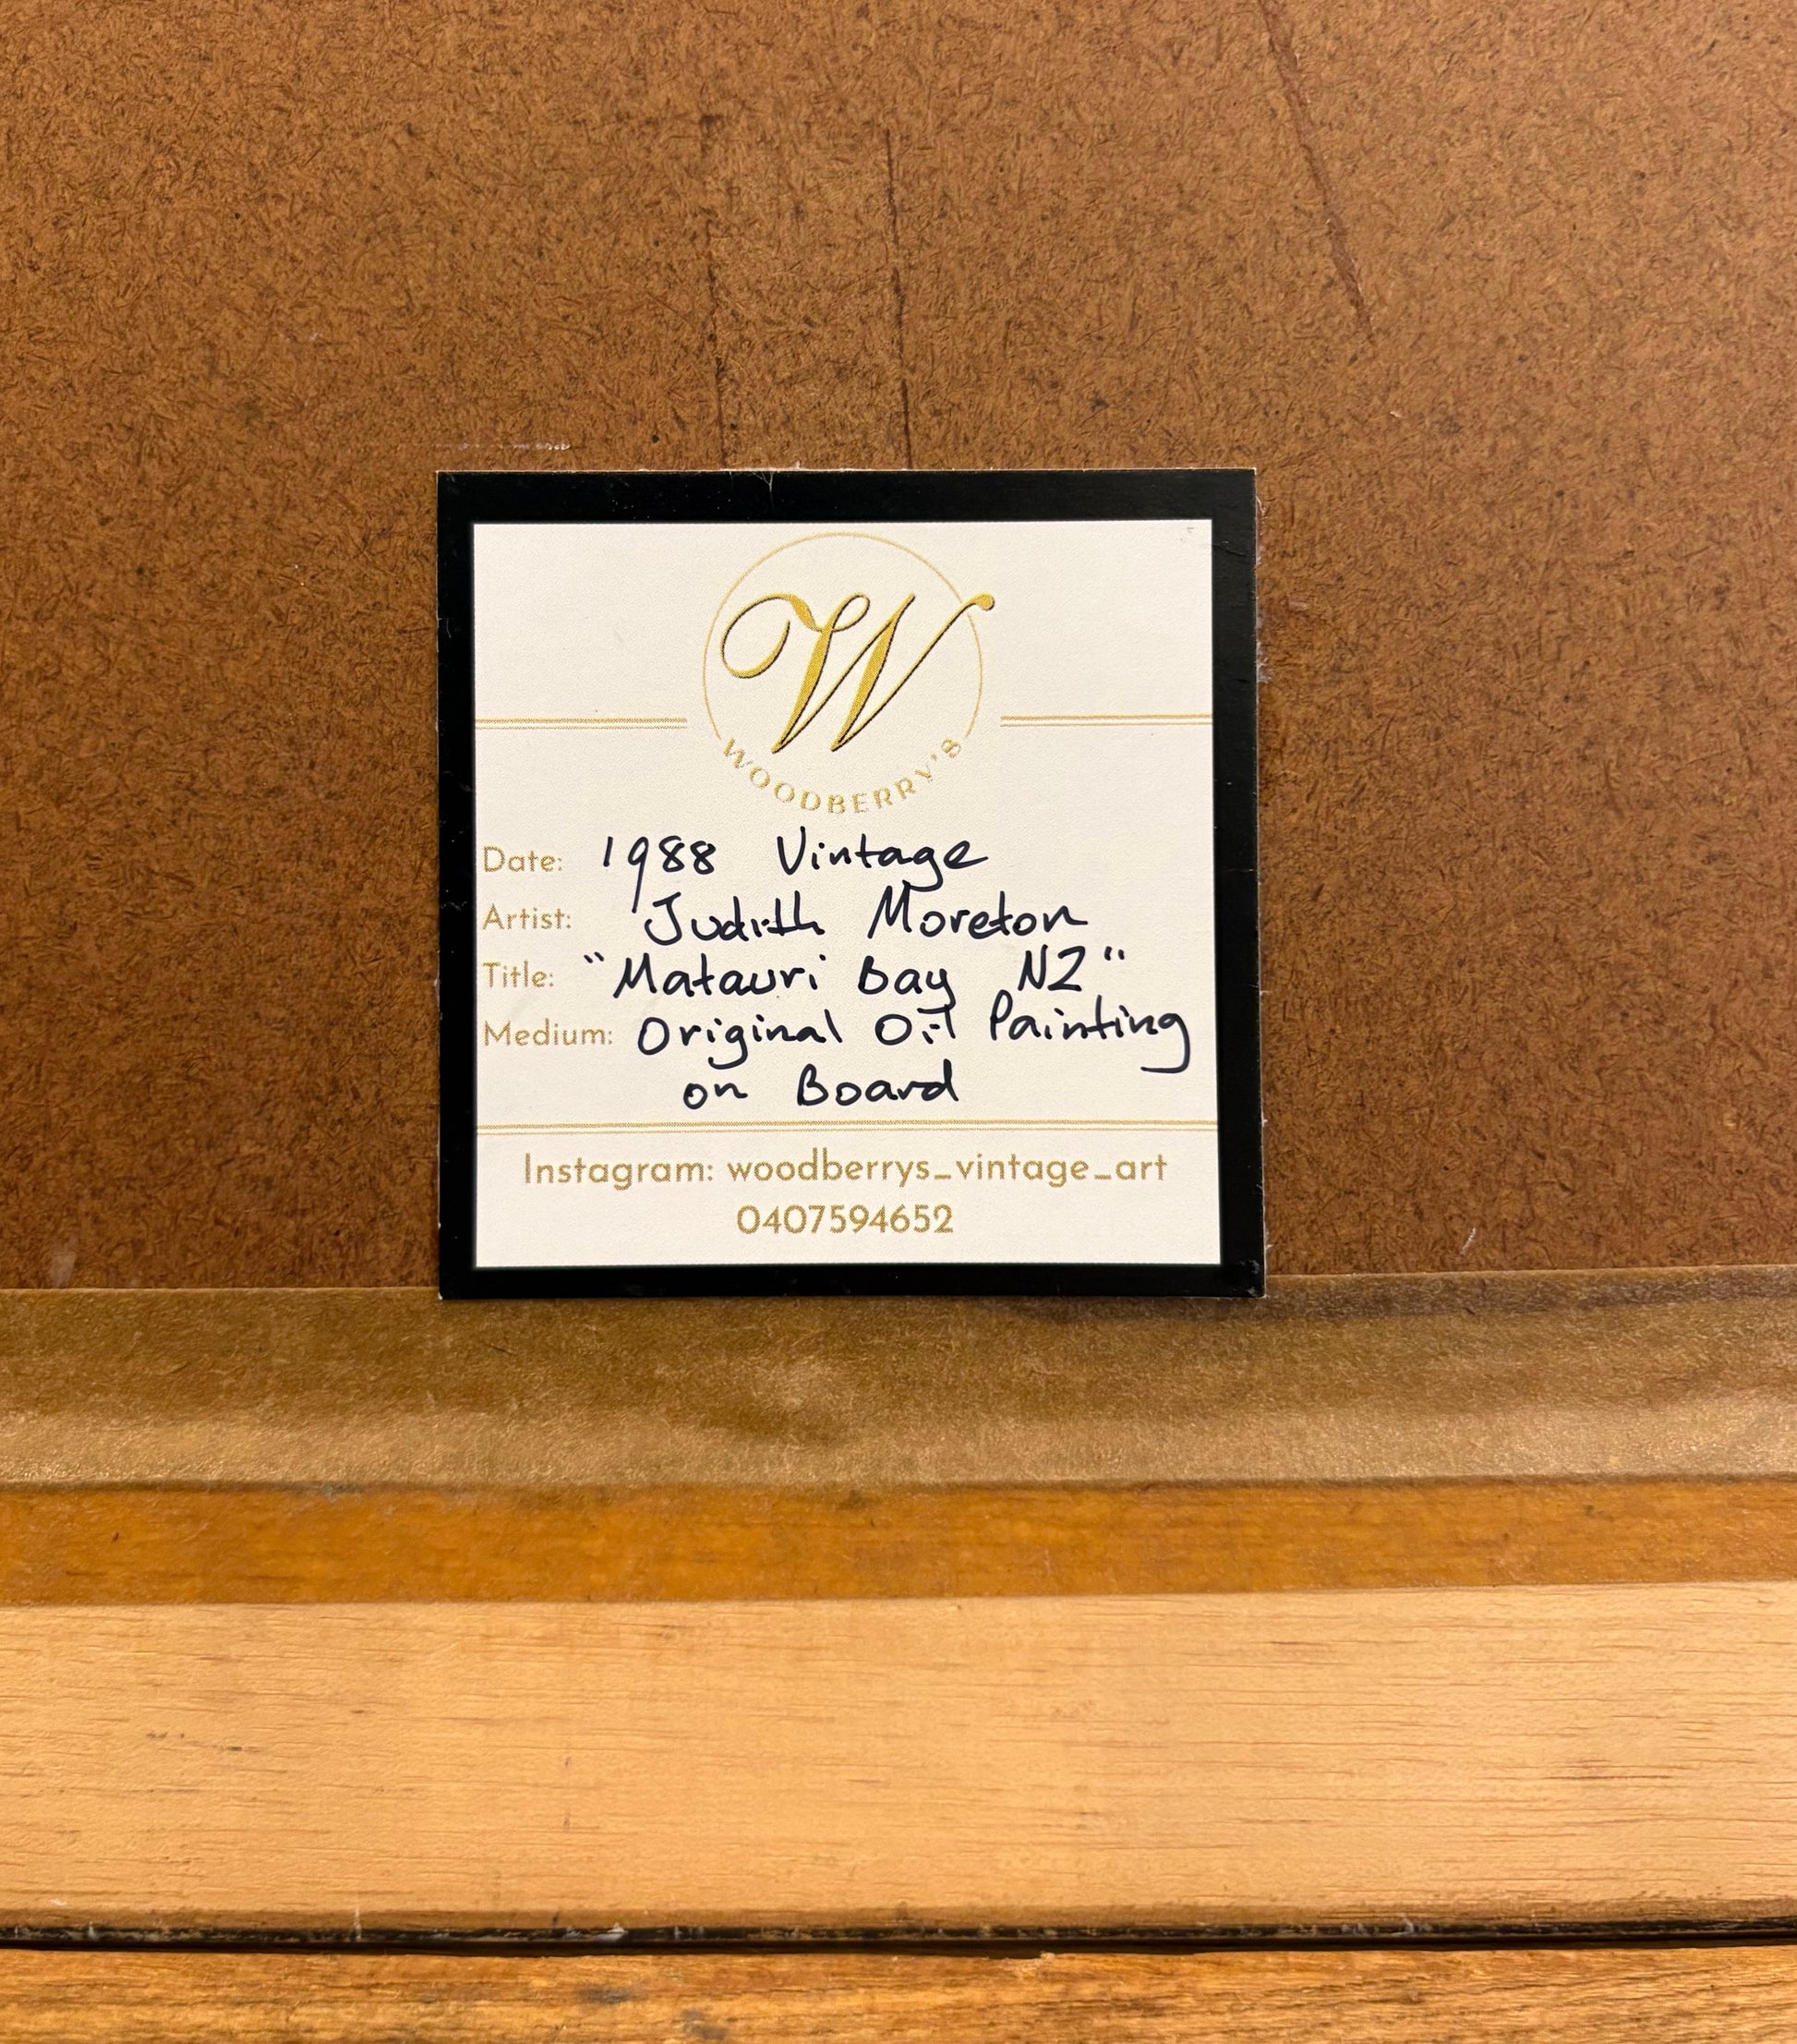 W
WOODBERRY'S
Date: 1988 Vintage
Artist: Judith Moreton
Title: "Matauri Bay NZ"
Medium: Original Oil Painting
on Board
Instagram: woodberrys_vintage_art
0407594652